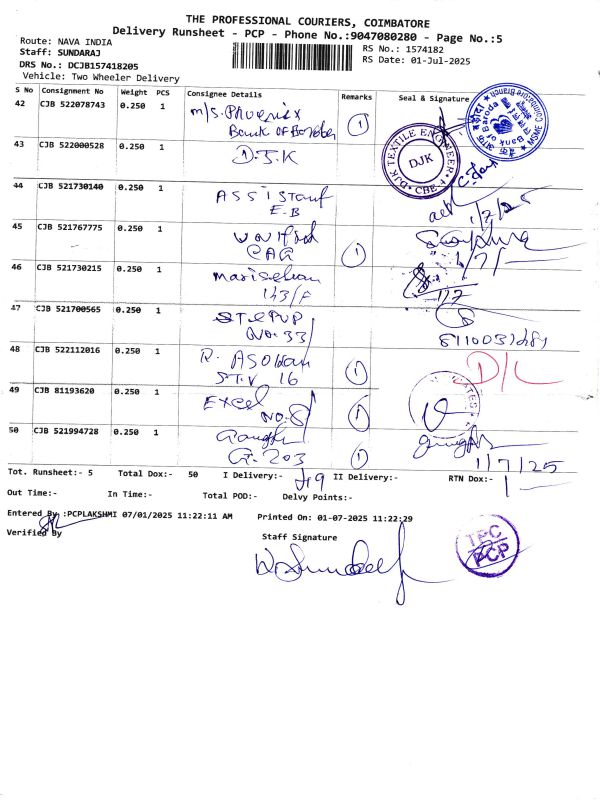 THE PROFESSIONAL COURIERS, COIMBATORE
Delivery Runsheet - PCP - Phone No.:9047080280 - Page No.:5
Route: NAVA INDIA
RS No.: 1574182
Staff: SUNDARAJ
RS Date: 01-Jul-2025
DRS No.: DCJB157418205
Vehicle: Two Wheeler Delivery
S No Consignment No Weight PCS Consignee Details Remarks Seal & Signature
42 CJB 522078743 0.250 1 M/S. Phoenix
Bank of Baroda 1
Bank of Baroda
MSME Coimbatore Branch
43 CJB 522000528 0.250 1 D.J.K
DJK TEXTILE ENGINEER
DJK
CBE-4
44 CJB 521730140 0.250 1 ASSISTant
E.B
1/7/25
45 CJB 521767775 0.250 1
1
46 CJB 521730215 0.250 1 Mariselvan
143/A
1/7
47 CJB 521700565 0.250 1 STEPUP
NO. 33
48 CJB 522112016 0.250 1 R. ASOKan
ST.V 16 1 D/L
49 CJB 81193620 0.250 1 EXCEL
NO. 8 1
50 CJB 521994728 0.250 1
G. 203 1
1/7/25
Tot. Runsheet:- 5 Total Dox:- 50 I Delivery:- 49 II Delivery:- RTN Dox:- 1
Out Time:- In Time:- Total POD:- Delvy Points:-
Entered By :PCPLAKSHMI 07/01/2025 11:22:11 AM Printed On: 01-07-2025 11:22:29
Verified By
Staff Signature
TPC
PCP